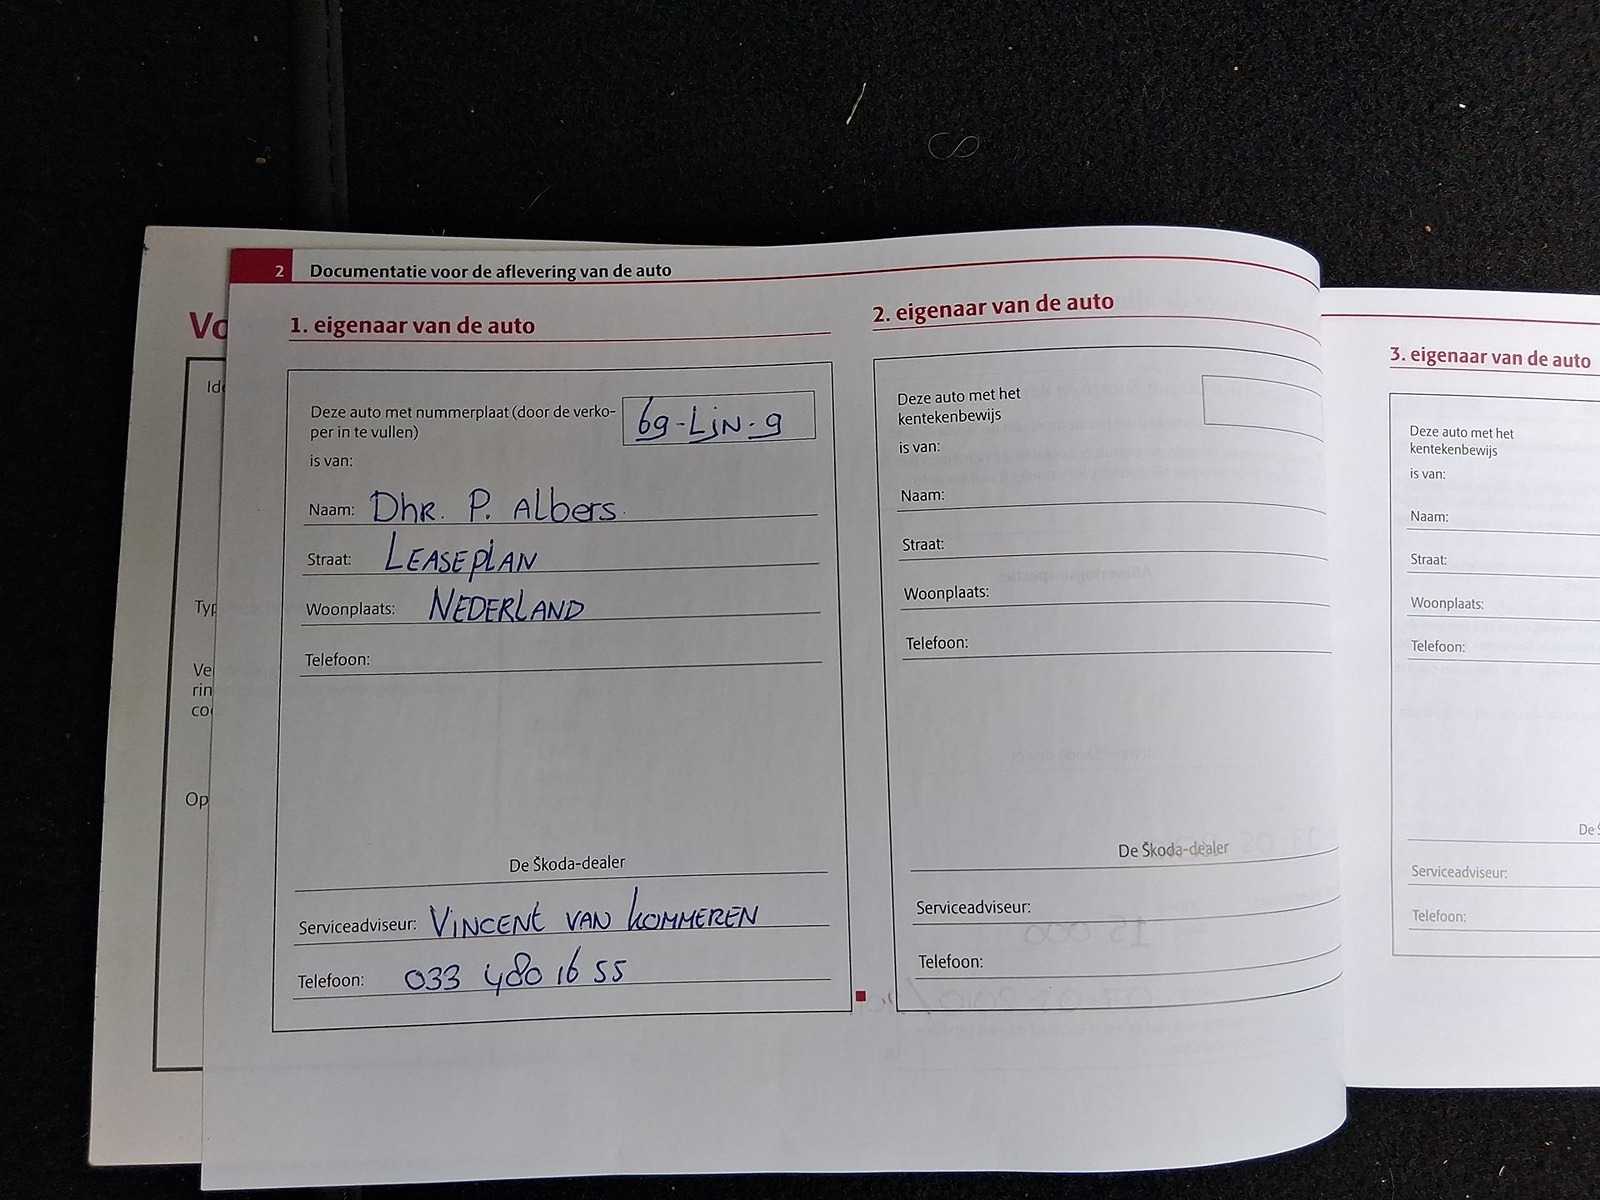 2 Documentatie voor de aflevering van de auto
Vo
Id
Typ
Ve
rin
co
Op
1. eigenaar van de auto
Deze auto met nummerplaat (door de verko-
per in te vullen)
69-LJN-9
is van:
Naam: Dhr. P. Albers.
Straat: LEASEPLAN
Woonplaats: NEDERLAND
Telefoon:
De Škoda-dealer
Serviceadviseur: VINCENT VAN KOMMEREN
Telefoon: 033 480 16 55
2. eigenaar van de auto
Deze auto met het
kentekenbewijs
is van:
Naam:
Straat:
Woonplaats:
Telefoon:
De Škoda-dealer
Serviceadviseur:
Telefoon:
3. eigenaar van de auto
Deze auto met het
kentekenbewijs
is van:
Naam:
Straat:
Woonplaats:
Telefoon:
De Š
Serviceadviseur:
Telefoon: